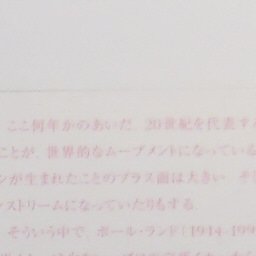 ここ何年かのあいだ、20世紀を代表す
ことが、世界的なムーブメントになっている
ンが生まれたことのプラス面は大きい。そ
ンストリームになっていたりもする。
そういう中で、ポール・ランド(1914-199